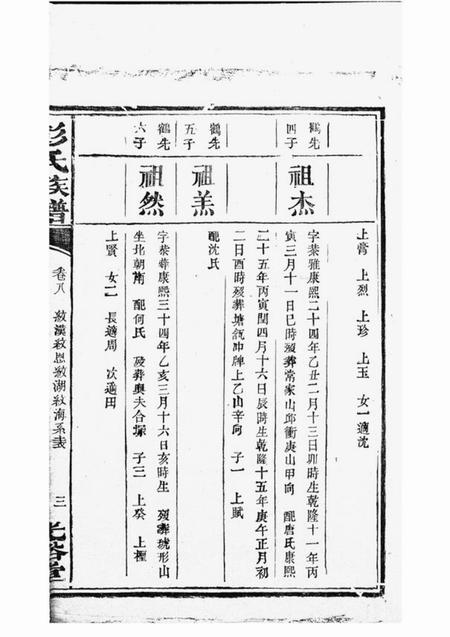 上膏 上烈 上珍 上玉 女一適沈
鶴先四子
祖杰
字泰雅康熙二十四年乙丑二月十三日卯時生乾隆十一年丙
寅三月十一日巳時歿葬常家山邱衝庚山甲向 配唐氏康熙
二十五年丙寅閏四月十六日辰時生乾隆十五年庚午正月初
二日酉時歿葬塘瓴冲牌上乙山辛向 子一 上賦
鶴先五子
祖羔
配沈氏
鶴先六子
祖然
字泰葬康熙三十四年乙亥三月十六日亥時生 歿葬琥形山
坐北朝南 配何氏 歿葬與夫合塚 子三 上癸 上桱
上賢 女二 長適周 次適田
彭氏族譜
卷八
三